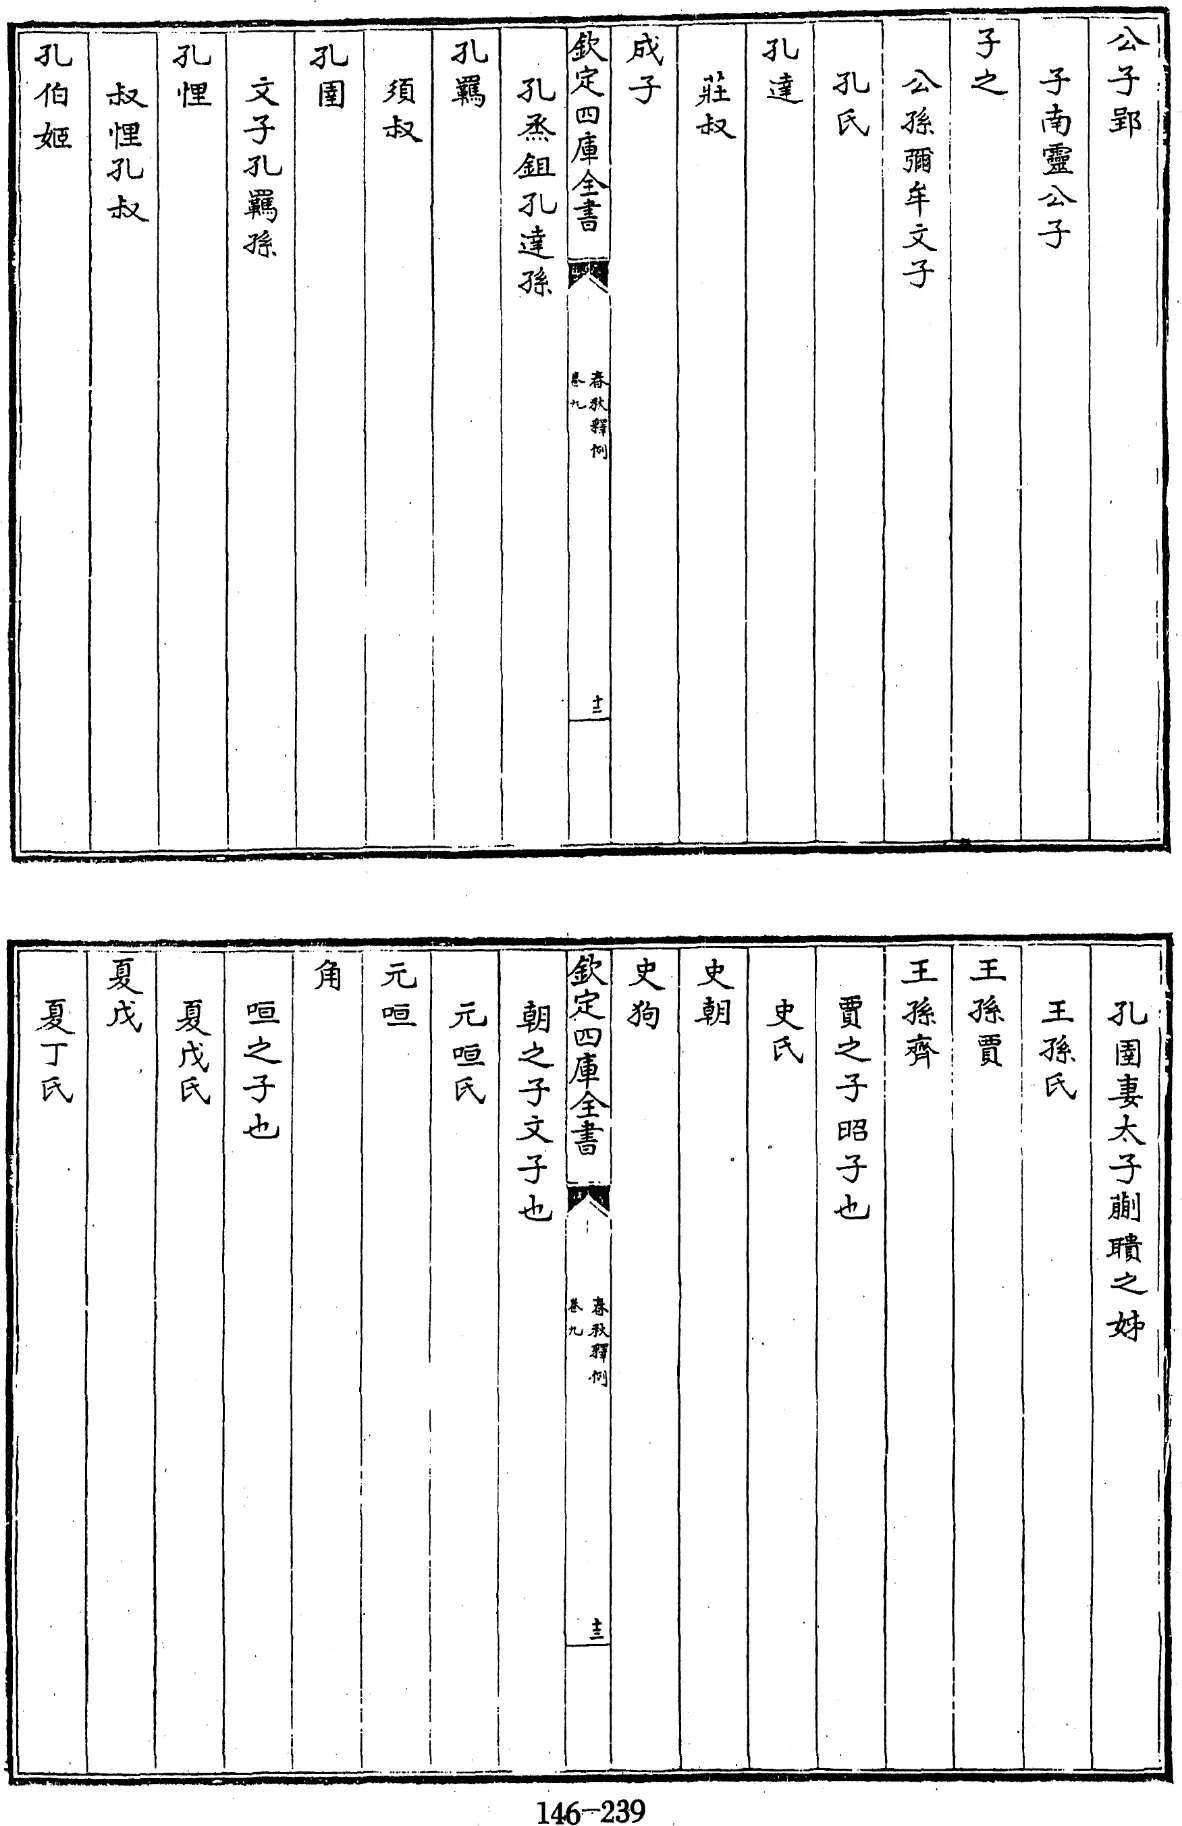 公子郢
子南靈公子
子之
公孫彌牟文子
孔氏
孔達
莊叔
成子
欽定四庫全書
春秋釋例
卷九
十二
孔烝鉏孔達孫
孔羈
須叔
孔圉
文子孔羈孫
孔悝
叔悝孔叔
孔伯姬
孔圉妻太子蒯聵之姊
王孫氏
王孫賈
王孫齊
賈之子昭子也
史氏
史朝
史狗
欽定四庫全書
春秋釋例
卷九
十三
朝之子文子也
元咺氏
元咺
角
咺之子也
夏戊氏
夏戊
夏丁氏
146-239